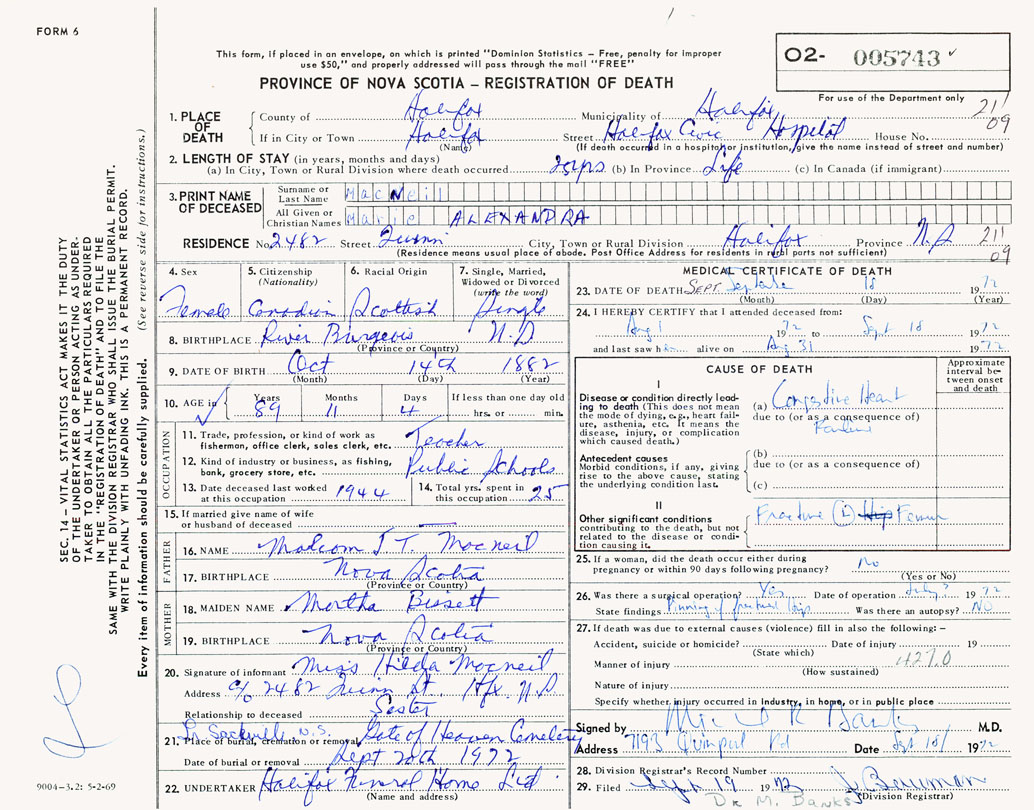 FORM 6
This form, if placed in an envelope, on which is printed "Dominion Statistics – Free, penalty for improper
use $50," and properly addressed will pass through the mail "FREE"
PROVINCE OF NOVA SCOTIA – REGISTRATION OF DEATH
O2- 005743
For use of the Department only
21/09
1. PLACE OF DEATH
County of Halifax Municipality of Halifax
If in City or Town Halifax Street Halifax Civic Hospital House No.
(Name) (If death occurred in a hospital or institution, give the name instead of street and number)
2. LENGTH OF STAY (in years, months and days)
(a) In City, Town or Rural Division where death occurred (b) In Province Life (c) In Canada (if immigrant)
3. PRINT NAME OF DECEASED
Surname or Last Name MacNeil
All Given or Christian Names Marie ALEXANDRA
RESIDENCE No. 2482 Street Quinn City, Town or Rural Division Halifax Province N.S. 211
09
(Residence means usual place of abode. Post Office Address for residents in rural parts not sufficient)
4. Sex Female
5. Citizenship (Nationality) Canadian
6. Racial Origin Scottish
7. Single, Married, Widowed or Divorced (write the word) Single
8. BIRTHPLACE River Burgeois N.S.
(Province or Country)
9. DATE OF BIRTH Oct 14th 1882
(Month) (Day) (Year)
10. AGE in Years 89 Months 11 Days 4 If less than one day old hrs. or min.
OCCUPATION
11. Trade, profession, or kind of work as fisherman, office clerk, sales clerk, etc. Teacher
12. Kind of industry or business, as fishing, bank, grocery store, etc. Public Schools
13. Date deceased last worked at this occupation 1944
14. Total yrs. spent in this occupation 25
15. If married give name of wife or husband of deceased
FATHER
16. NAME Malcom J T. Macneil
17. BIRTHPLACE Nova Scotia
(Province or Country)
MOTHER
18. MAIDEN NAME Martha Bissett
19. BIRTHPLACE Nova Scotia
(Province or Country)
20. Signature of informant Miss Hilda Macneil
Address c/o 2482 Quinn St. Hfx. N.S.
Relationship to deceased Sister
Lr Sackville N.S.
21. Place of burial, cremation or removal Gate of Heaven Cemetery
Date of burial or removal Sept 20th 1972
22. UNDERTAKER Halifax Funeral Home Ltd
(Name and address)
MEDICAL CERTIFICATE OF DEATH
23. DATE OF DEATH SEPT. September 18 1972
(Month) (Day) (Year)
24. I HEREBY CERTIFY that I attended deceased from:
Aug 1 1972 to Sept 18 1972
and last saw h alive on Aug 31 1972
CAUSE OF DEATH
Approximate interval between onset and death
I
Disease or condition directly leading to death (This does not mean the mode of dying, e.g., heart failure, asthenia, etc. It means the disease, injury, or complication which caused death.)
(a) Congestive Heart
due to (or as a consequence of)
Failure
Antecedent causes
Morbid conditions, if any, giving rise to the above cause, stating the underlying condition last.
(b)
due to (or as a consequence of)
(c)
II
Other significant conditions contributing to the death, but not related to the disease or condition causing it.
Fracture (L) Hip Femur
25. If a woman, did the death occur either during pregnancy or within 90 days following pregnancy? No
(Yes or No)
26. Was there a surgical operation? Yes Date of operation July? 1972
State findings Pinning of fractured hip Was there an autopsy? NO
27. If death was due to external causes (violence) fill in also the following: –
Accident, suicide or homicide? Date of injury 19
(State which)
Manner of injury 427.0
(How sustained)
Nature of injury
Specify whether injury occurred in industry, in home, or in public place
Signed by M.D.
Address 7193 Quinpool Rd Date Sept 18/ 1972
28. Division Registrar's Record Number
29. Filed Sept 19 1972 J. Bauman
Dr M. Banks (Division Registrar)
SEC. 14 – VITAL STATISTICS ACT MAKES IT THE DUTY
OF THE UNDERTAKER OR PERSON ACTING AS UNDER-
TAKER TO OBTAIN ALL THE PARTICULARS REQUIRED
IN THE "REGISTRATION OF DEATH" AND TO FILE THE
SAME WITH THE DIVISION REGISTRAR WHO SHALL ISSUE THE BURIAL PERMIT.
WRITE PLAINLY WITH UNFADING INK. THIS IS A PERMANENT RECORD.
Every item of information should be carefully supplied. (See reverse side for instructions.)
9004–3.2: 5-2-69